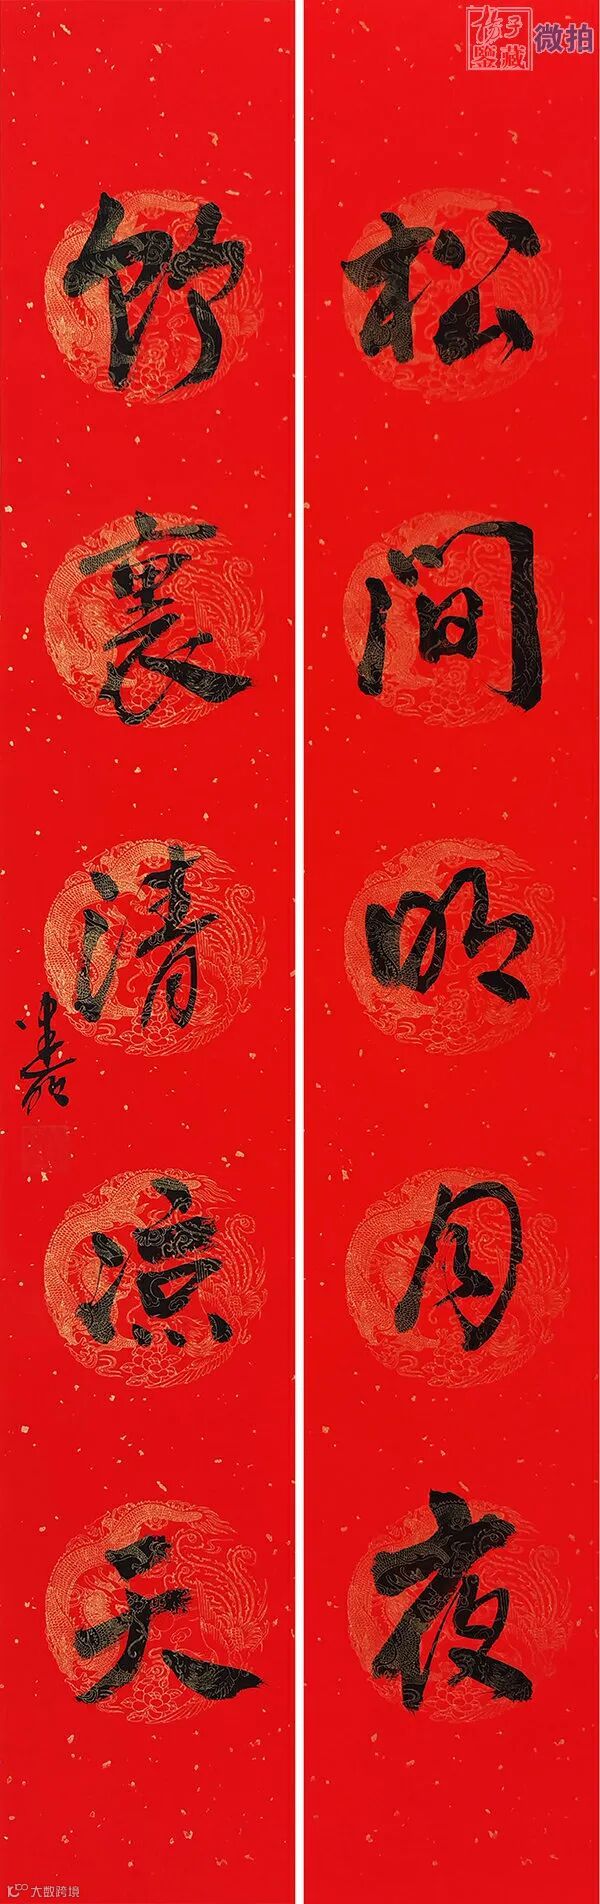 扬子
鉴藏
微拍
松间明月夜
竹裏清凉天
大数跨境